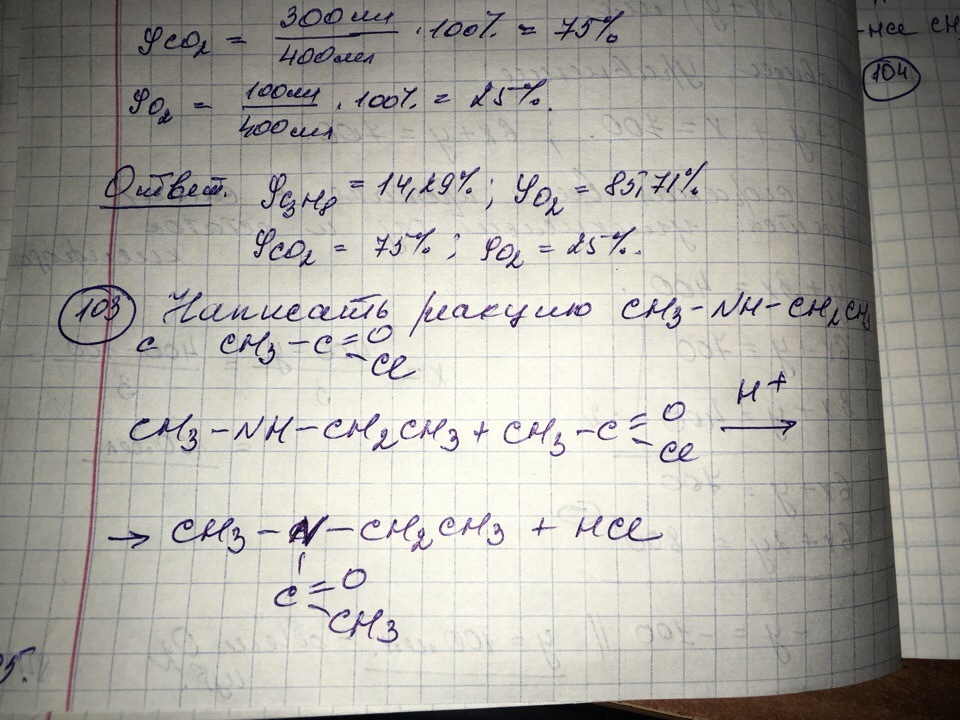 φCO₂ = 300мл / 400мл · 100% = 75%
φO₂ = 100мл / 400мл · 100% = 25%.
Ответ. φC₃H₈ = 14,29%; φO₂ = 85,71%
φCO₂ = 75%; φO₂ = 25%.
103 Написать реакцию CH₃-NH-CH₂CH₃
с CH₃-C=O
-Cl
CH₃-NH-CH₂CH₃ + CH₃-C=O H⁺ →
-Cl
→ CH₃-N-CH₂CH₃ + HCl
C=O
-CH₃
-HCl CH₃
104